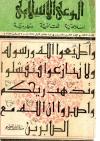 الوعي الإسلامي
إسلامية ثقافية شهرية
وأطيعوا الله ورسوله
ولا تنازعوا فتفشلوا
وتذهب ريحكم
واصبروا إن الله مع
الصابرين